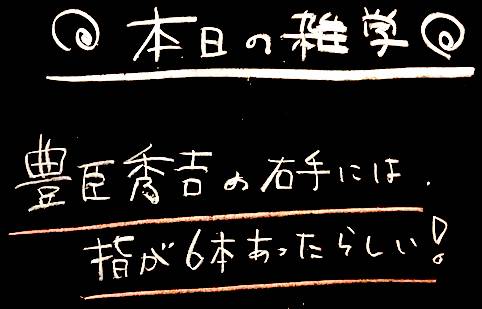 本日の雑学
豊臣秀吉の右手には、
指が6本あったらしい!